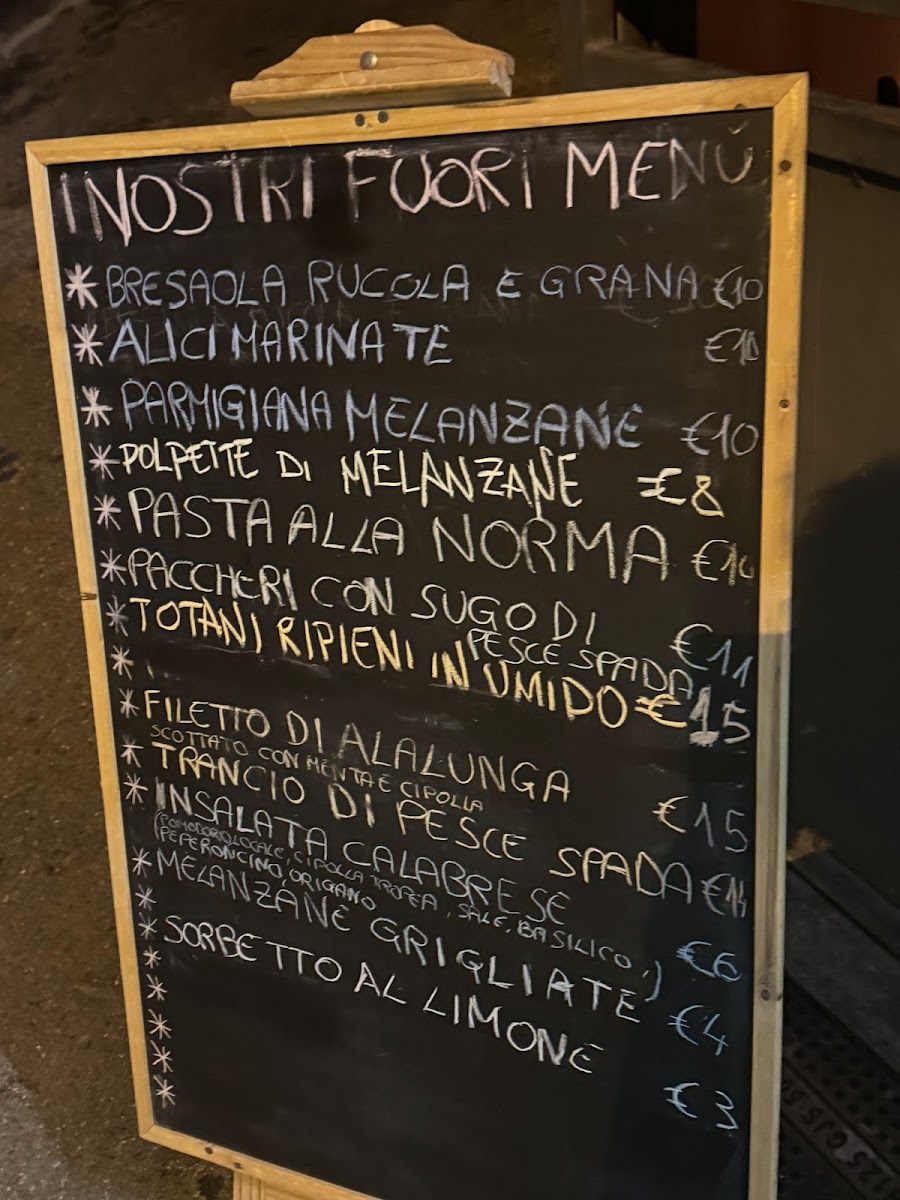 I NOSTRI FUORI MENÙ
* BRESAOLA RUCOLA E GRANA €10
* ALICI MARINATE €10
* PARMIGIANA MELANZANE €10
* POLPETTE DI MELANZANE €8
* PASTA ALLA NORMA €10
* PACCHERI CON SUGO DI
PESCE SPADA €11
* TOTANI RIPIENI IN UMIDO €15
*
* FILETTO DI ALALUNGA
SCOTTATO CON MENTA E CIPOLLA €15
* TRANCIO DI PESCE SPADA €14
* INSALATA CALABRESE
(POMODORO LOCALE, CIPOLLA TROPEA, SALE, BASILICO,
PEPERONCINO, ORIGANO) €6
* MELANZANE GRIGLIATE €4
*
* SORBETTO AL LIMONE €3
*
*
*
*
*